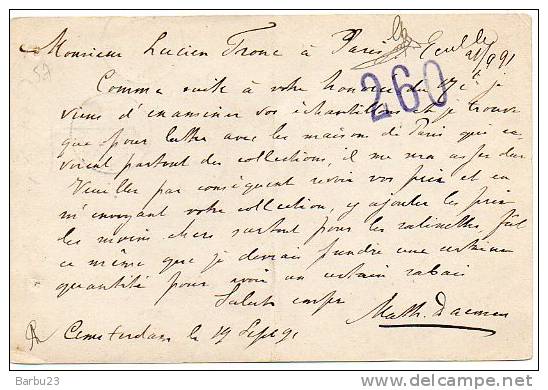 Monsieur Lucien Tronc à Paris
21/9 91
260
Comme suite à votre honorée du 17 ct je
viens d'examiner vos échantillons et je trouve
que pour lutter avec les maisons de Paris qui en-
voient partout des collections, il me sera assez dur
Veuillez par conséquent revoir vos prix et en
m'envoyant votre collection, y ajouter les prix
les moins chers surtout pour les ratinettes, fût
ce même que je devrais prendre une certaine
quantité pour avoir un certain rabais
Saluts empr
Math. Daemen
Amsterdam le 19 Sept 91
Barbu23
delcampe.net